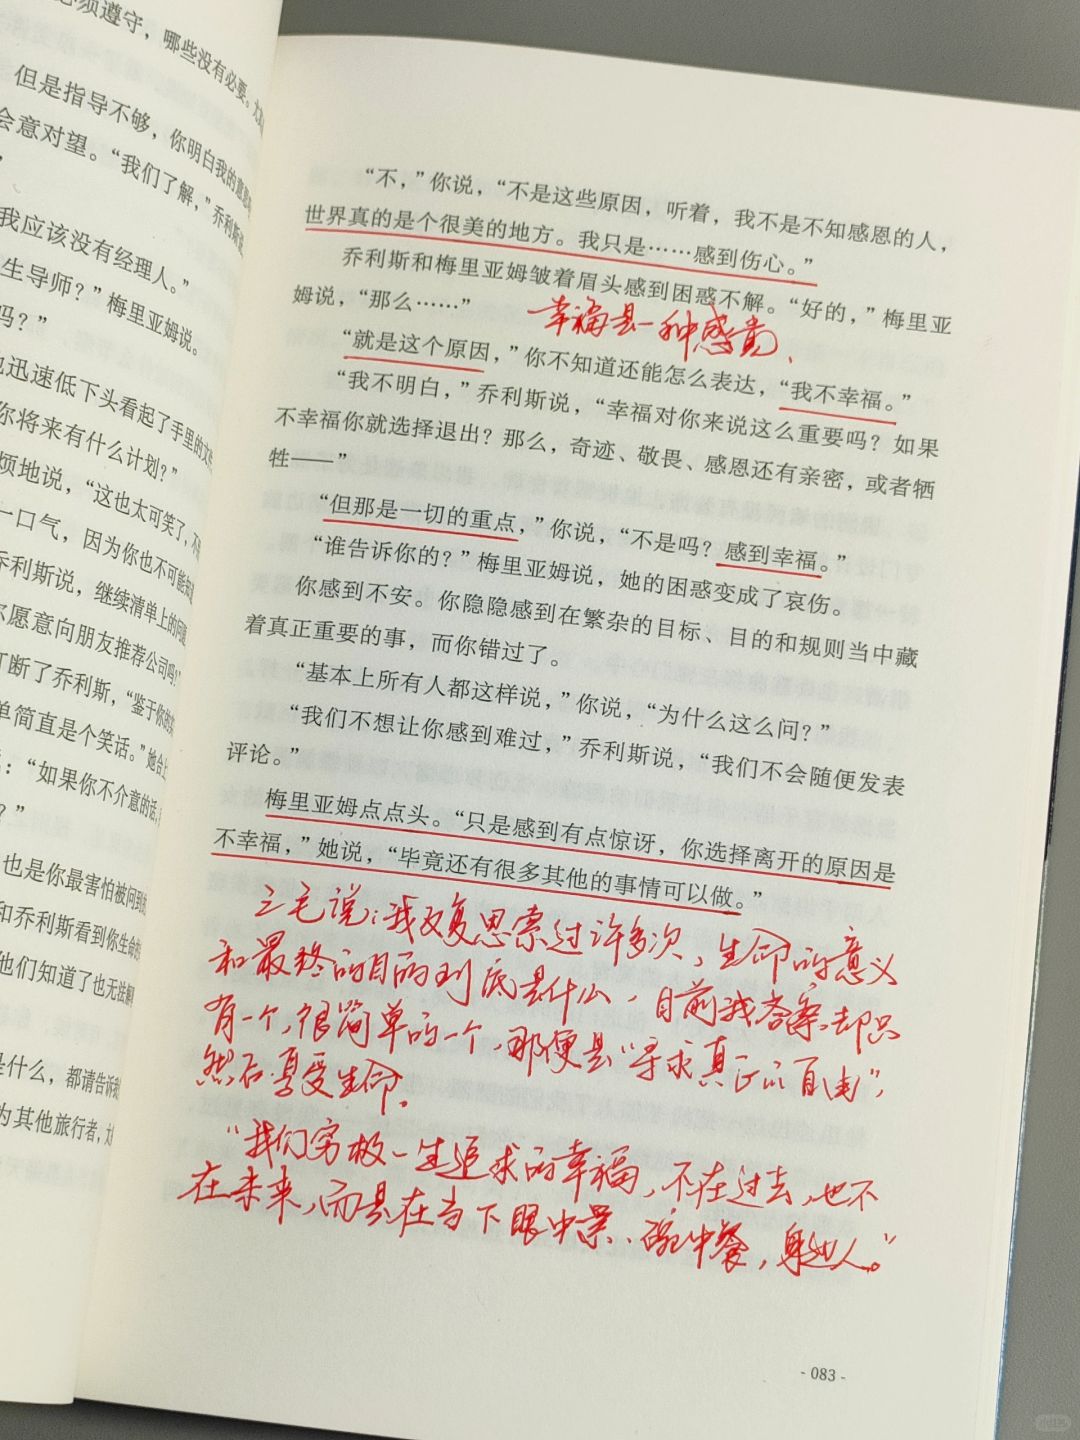 必须遵守，哪些没有必要。尤其
但是指导不够，你明白我的意思
会意对望。“我们了解，”乔利斯说
”
我应该没有经理人。”
生导师？”梅里亚姆说。
吗？”
也迅速低下头看起了手里的文件
你将来有什么计划？”
烦地说，“这也太可笑了，不
一口气，因为你也不可能知道
乔利斯说，继续清单上的问题
你愿意向朋友推荐公司吗？
打断了乔利斯，“鉴于你的
单简直是个笑话。”她合上
：“如果你不介意的话，
？”
也是你最害怕被问到的
和乔利斯看到你生命的
他们知道了也无法解
是什么，都请告诉我
为其他旅行者，
“不，”你说，“不是这些原因，听着，我不是不知感恩的人，
世界真的是个很美的地方。我只是……感到伤心。”
乔利斯和梅里亚姆皱着眉头感到困惑不解。“好的，”梅里亚
姆说，“那么……”
幸福是一种感觉、
“就是这个原因，”你不知道还能怎么表达，“我不幸福。”
“我不明白，”乔利斯说，“幸福对你来说这么重要吗？如果
不幸福你就选择退出？那么，奇迹、敬畏、感恩还有亲密，或者牺
牲——”
“但那是一切的重点，”你说，“不是吗？感到幸福。”
“谁告诉你的？”梅里亚姆说，她的困惑变成了哀伤。
你感到不安。你隐隐感到在繁杂的目标、目的和规则当中藏
着真正重要的事，而你错过了。
“基本上所有人都这样说，”你说，“为什么这么问？”
“我们不想让你感到难过，”乔利斯说，“我们不会随便发表
评论。”
梅里亚姆点点头。“只是感到有点惊讶，你选择离开的原因是
不幸福，”她说，“毕竟还有很多其他的事情可以做。”
三毛说：我反复思索过许多次，生命的意义
和最终的目的到底是什么，目前我答案却只
有一个，很简单的一个，那便是“寻求真正的自由”，
然后享受生命。
“我们穷极一生追求的幸福，不在过去，也不
在未来，而是在当下眼中景、碗中餐，身边人。”
- 083 -